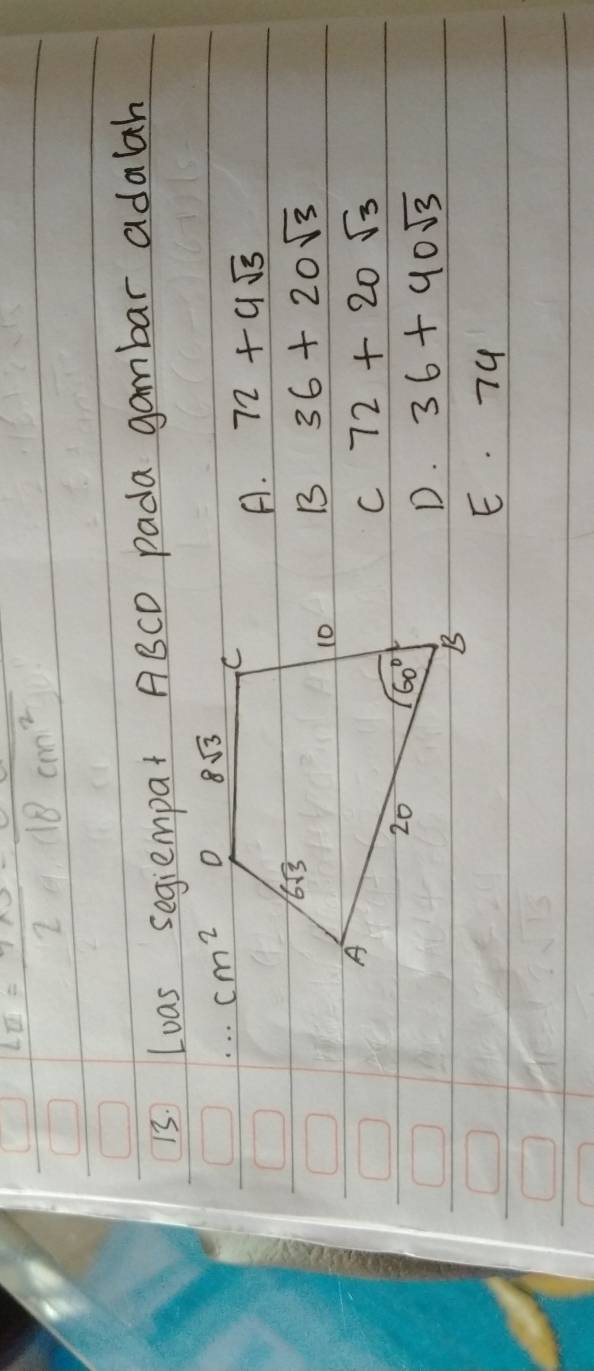 13. Luas segiempat ABCD pada gambar adalah
... cm²
D 8√3 C
6√3
10
A
20
60°
B
A. 72 + 4√3
B 36 + 20√3
C 72 + 20√3
D. 36 + 40√3
E. 74